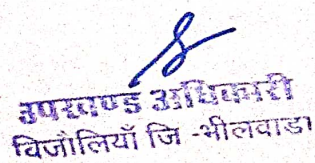 उपखण्ड अधिकारी
विजौलियाँ जि -भीलवाडा